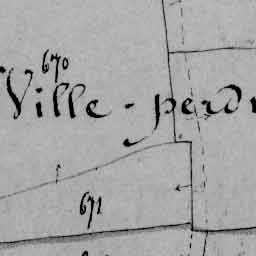 670
Ville-perd
671